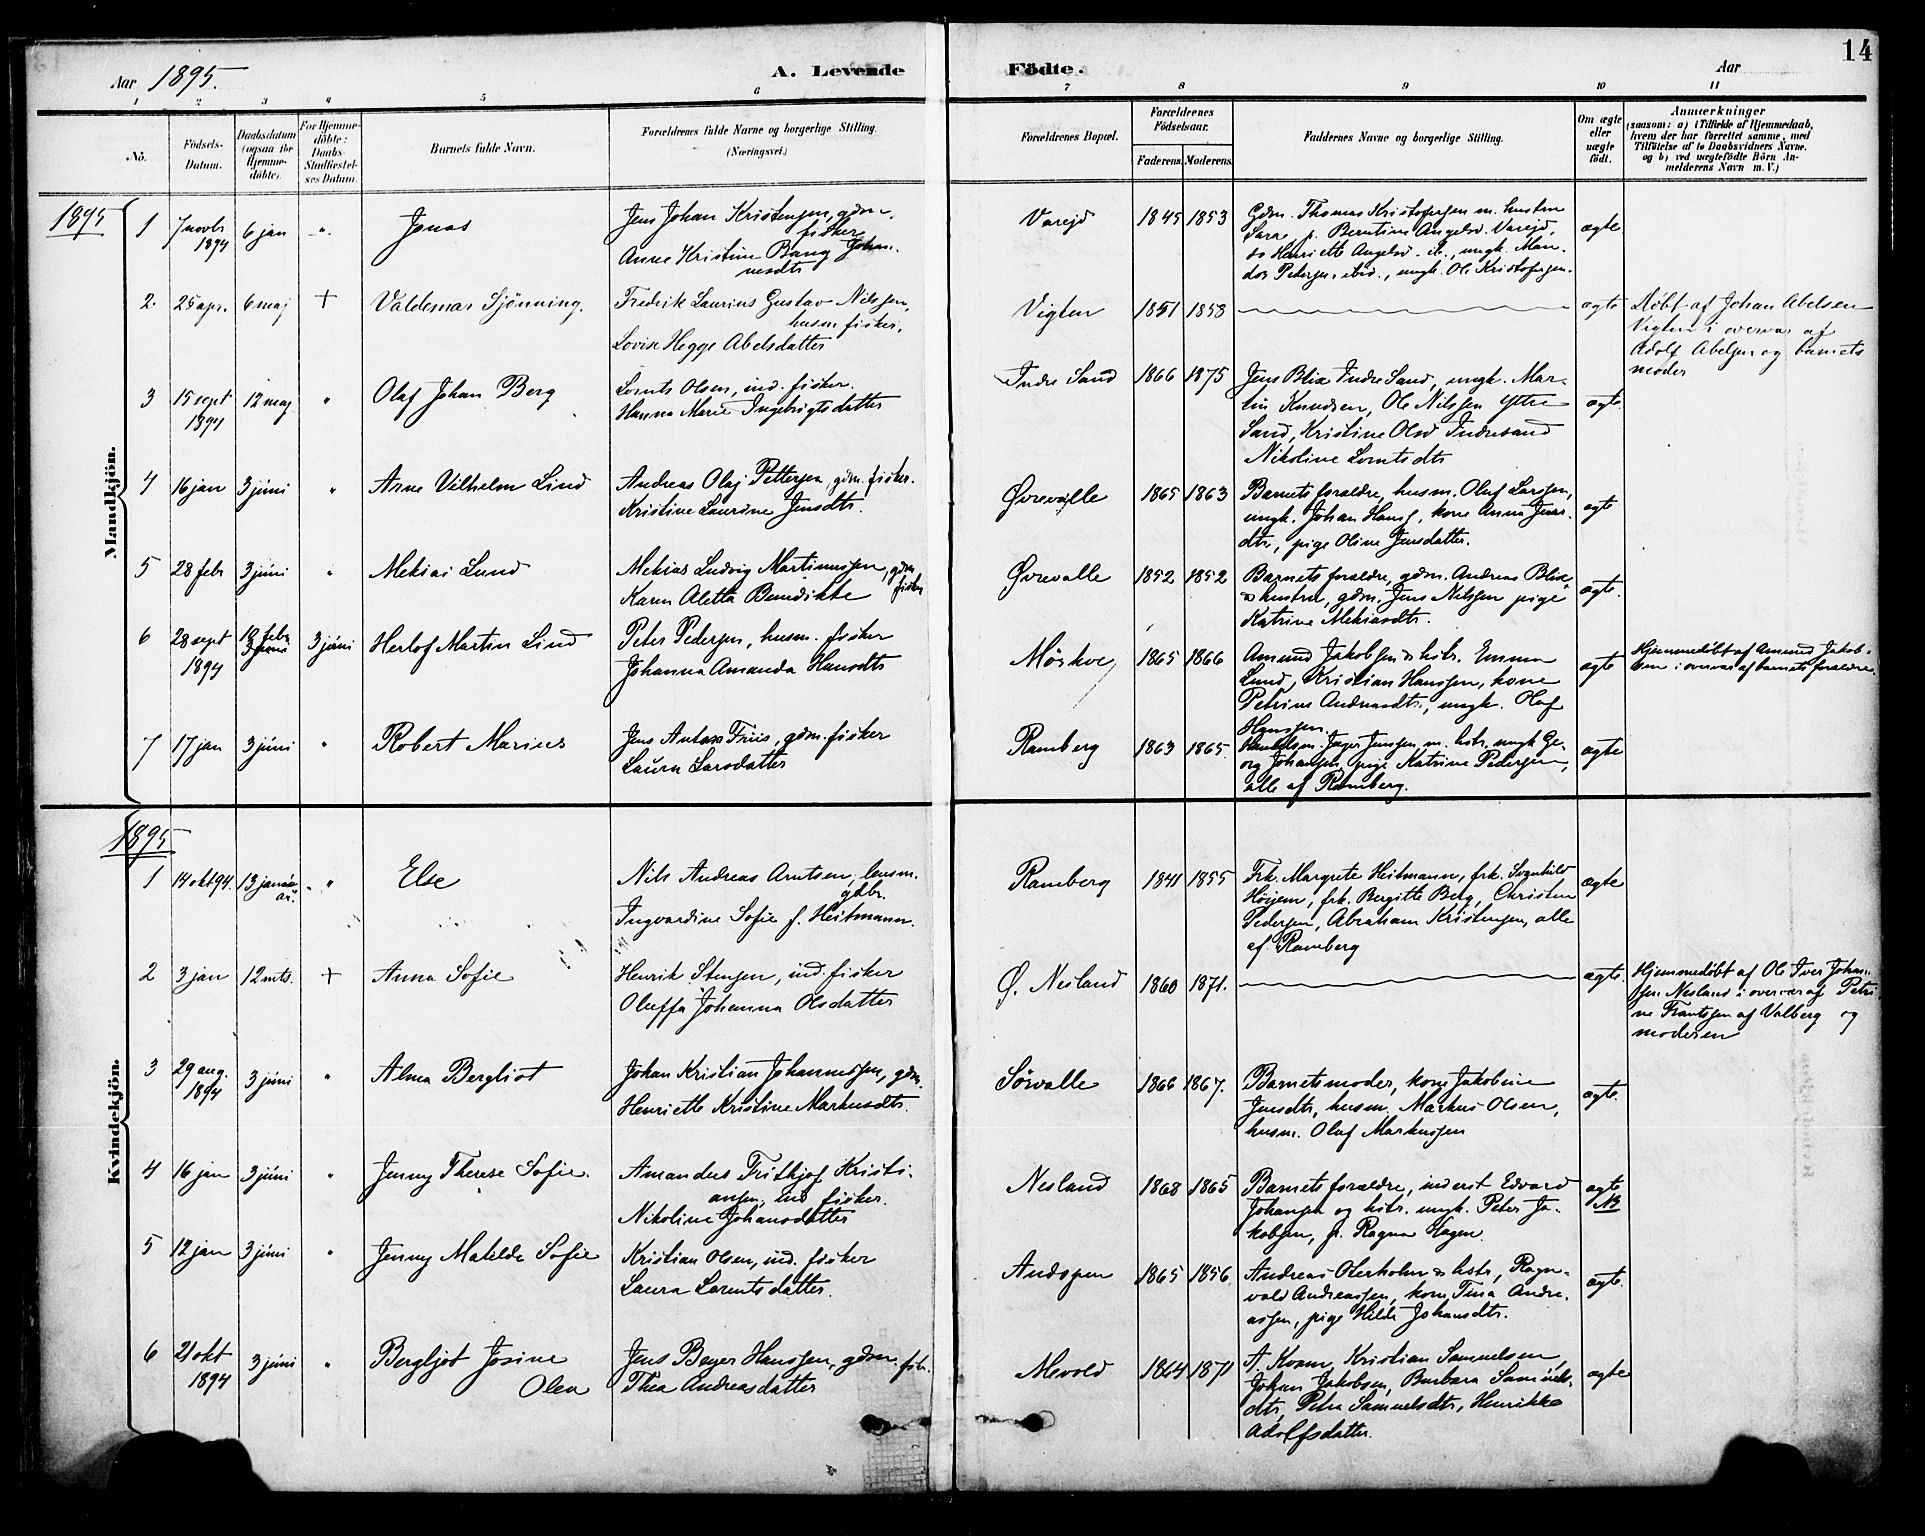 14
Aar 1895.
A. Levende Födte.
Aar
1 2 3 4 5 6 7 8 9 10 11
No.
Födsels-
Datum.
Daabsdatum
(ogsaa for
Hjemme-
döbte).
For Hjemme-
döbte:
Daabs-
Stadfæstel-
ses Datum.
Barnets fulde Navn.
Forældrenes fulde Navne og borgerlige Stilling.
(Næringsvei.)
Forældrenes Bopæl.
Forældrenes
Födselsaar.
Faderens. Moderens.
Faddernes Navne og borgerlige Stilling.
Om ægte
eller
uægte
födt.
Anmærkninger
(saasom: a) i Tilfælde af Hjemmedaab,
hvem der har forrettet samme, med
Tilföielse af to Daabsvidners Navne,
og b) ved uægtefödte Börn An-
melderens Navn m. V.)
Mandkjön.
1895
1 7 novbr 1894 6 jan " Jonas
Jens Johan Kristensen, gdm.
fisker
Anne Kristine Bang Johan-
nesdtr
Varejd 1845 1853
Gdm. Thomas Kristofersen m. hustru
Sara p. Berntine Angelsd. Varejd,
do Henriette Angelsd. ib., ungk.
Petersen ibid., ungk. Ole Kristofersen.
ægte
2. 25 apr. 6 maj + Valdemar Sjönning.
Fredrik Laurius Gustav Nilssen,
husm. fisker.
Lovise Hegge Abelsdatter
Vigten 1851 1853
ægte
Döbt af Johan Abelsen
Vigten i overvær af
Adolf Abelsen og barnets
moder
3 15 sept 1894 12 maj " Olaf Johan Berg
Lornts Olsen, ind. fisker.
Hanna Marie Ingebrigtsdatter
Indre Sand 1866 1875
Jens Blix Indre Sand, ungk. Mar-
tin Knudsen, Ole Nilssen Ytre
Sand, Kristine Olsd Indresand
Nikoline Lorntsdtr
ægte.
4 16 jan 3 júni " Arne Vilhelm Lind
Andreas Olaj Pettersen, gdm. fisker.
Kristine Laurine Jensdtr.
Øvrevalle 1865 1863
Barnets forældre, husm. Oluf Larssen,
ungk. Johan Hansen, kone Anna Jens-
dtr, pige Oline Jensdatter.
ægte
5 28 febr 3 júni " Mekias Lund
Mekias Ludvig Martinussen, gdm.
fisker
Karen Aletta Benedikte
Øvrevalle 1852 1852
Barnets forældre, gdm. Andreas Blix
& hustru, gdm. Jens Nilssen pige
Katrine Mekiasdtr.
ægte.
6 28 sept 1894 18 febr 3 júni Herlof Martin Lind
Peter Pedersen, husm. fisker
Johanna Amanda Hansdtr
Möskve 1865 1866
Amund Jakobsen & hstr. Emma
Lund, Kristian Hanssen, kone
Petrine Andreasdtr, ungk. Olaf
Hanssen.
ægte
Hjemmedöbt af Amund Jakob-
sen i overvær af barnets forældre.
7 17 jan 3 júni " Robert Marius
Jens Anton Friis, gdm. fisker
Laura Larsdatter
Ramberg 1863 1865.
Handelsm. Jager Jenssen m. hstr. ungk Ge-
org Johansen, pige Katrine Pedersen,
alle af Ramberg.
ægte
Kvindekjön.
1895
1 14 okt 94. 13 janú-
ar. " Else
Nils Andreas Arntsen, lensm.
gdbr.
Ingvardine Sofie f. Heitmann.
Ramberg 1841 1855
Frk. Margrete Heitmann, frk. Svanhild
Höyem, frk. Bergitte Berg, Christen
Pedersen, Abraham Kristensen, alle
af Ramberg
ægte
2 3 jan 12 mts. + Anna Sofie
Henrik Stensen, ind. fisker
Oluffa Johanna Olsdatter
Ø. Nesland 1860 1871.
ægte.
Hjemmedöbt af Ole Iver Johan-
sen Nesland i overvær af Petri-
ne Frantsen af Valberg og
moderen
3 29 aug. 1894 3 júni " Alma Bergliot
Johan Kristian Johannessen, gdm.
Henriette Kristine Markusdtr.
Sörvalle 1866 1867.
Barnets moder, kone Jakobine
Jensdtr, husm. Markus Olsen,
husm. Olaf Markussen
ægte.
4 16 jan 3 júni " Jenny Therese Sofie.
Amandus Frithjof Kristi-
ansen, ind fisker.
Nikoline Johansdatter
Nesland 1868 1865
Barnets forældre, inderst Edvard
Johansen og hstr. ungk. Peter Ja-
kobsen, p. Ragna Hagen.
ægte
NB
5 12 jan 3 júni " Jenny Matilde Sofie
Kristian Olsen, ind. fisker
Laura Larentsdatter.
Andopen 1865 1856.
Andreas Oterholm & hstr, Ragn-
vald Andreassen, kone Tina Andre-
assen, pige Hilda Johansdtr.
ægte.
6 21 okt 1894 3 júni " Bergljot Josine
Olea
Jens Beyer Hanssen, gdm. fisker.
Thea Andreasdatter
Mevold 1864 1871
A. Kvam, Kristian Samuelsen,
Johan Jakobsen, Barbara Samuels-
dtr, Petra Samuelsdtr, Henrikke
Adolfsdatter.
ægte